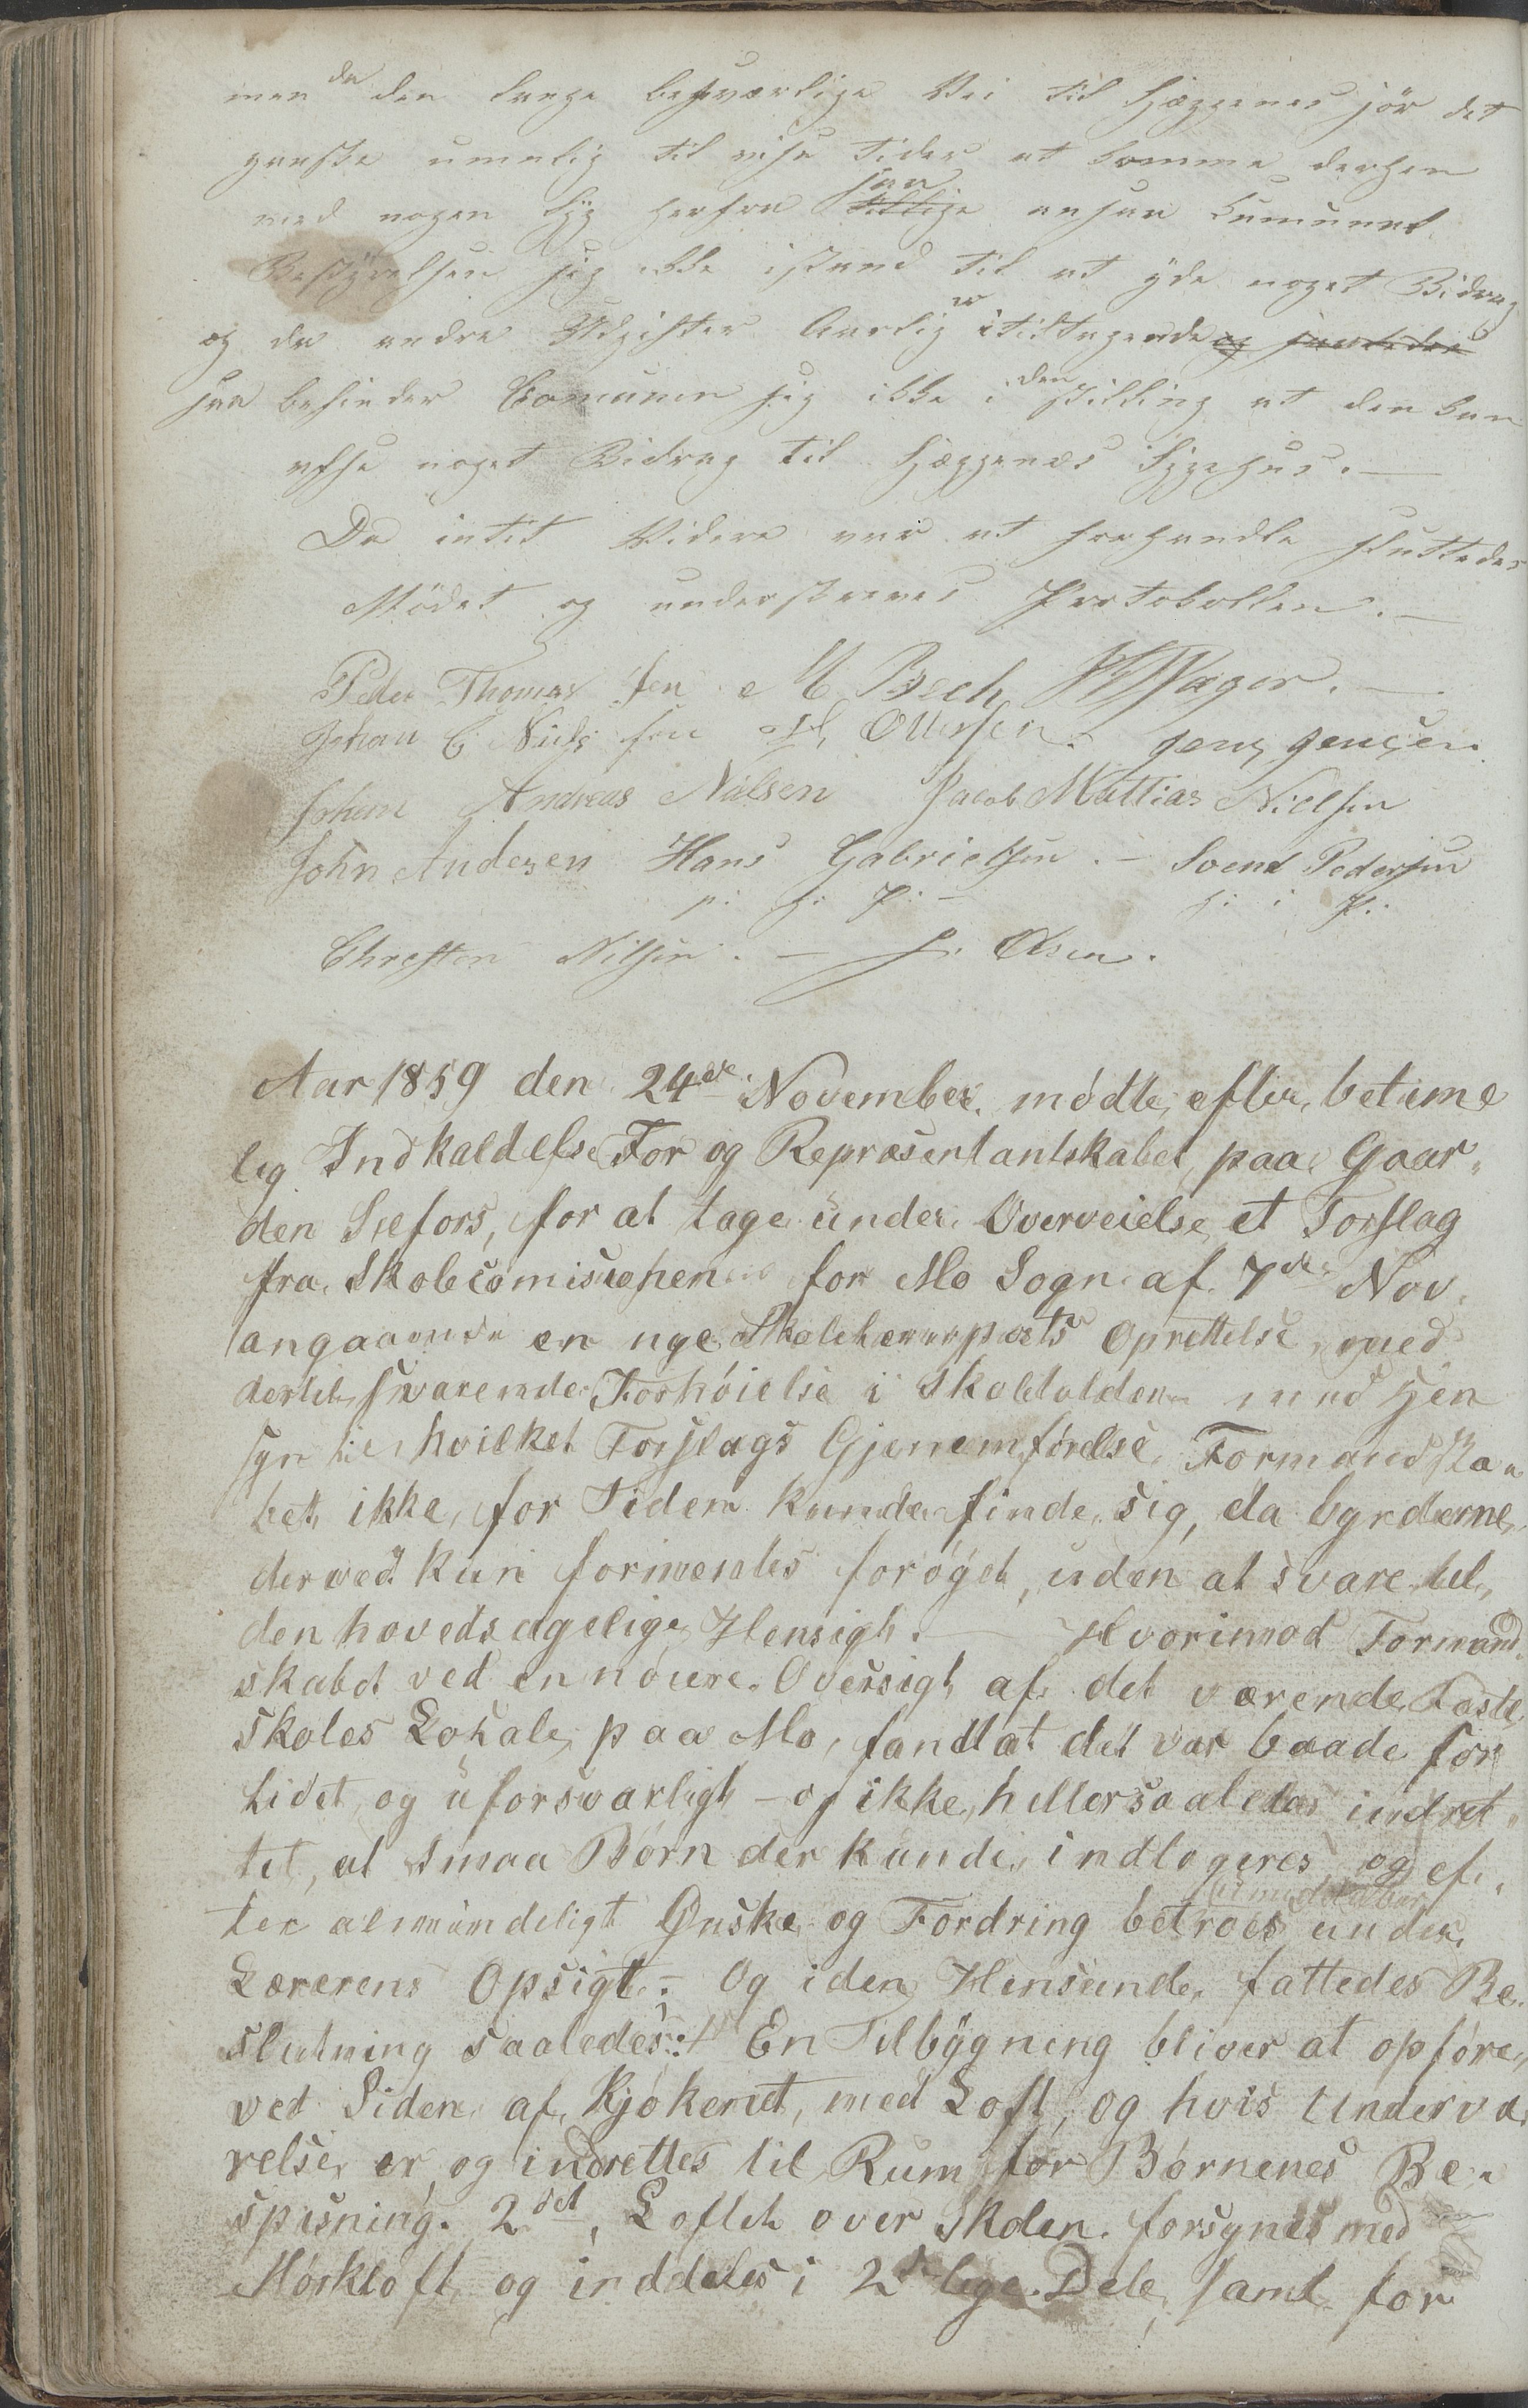 men da den lange besværlige Vei til Hæggenes gjör det
ganske umulig til visse Tider at komme derhen
med nogen Syg herfra saa ansaa Kumunal
Bestÿrelsen sig ikke istand til at ÿde noget Bidrag
og da andre Udgifter Aarlig er itiltagende og
saa befinder Comunen sig ikke i den stilling at den kan
noget Bidrag til Hæggenæs Sÿgehus. —
Da intet Videre var at forhandle sluttedes
Mödet og underskreves Protokollen. —
Peder Thomas sen M Bech Jæger. —
Johan C Niels sen Ottersen. Jens Jensen
Johan Andreas Nilsen Jacob Mattias Nielsen
John Andersen Hans Gabrielsen. — Svend Pedersen
Chresten Nilsen. — Olsen.
Aar 1859 den 24de November. mødte, efter, betime
lig Indkaldelse For og Repræsentantskabet, paa Gaar-
den Selfors, for at tage under Overveielse, et Forslag
fra Skolecomisionen for Mo Sogn af 7de Nov.
angaaende en nye Skolelærerposts Oprettelse, med
dertil svarende Forhøielse i Skoletolden med Hen
syn til hvilket Forslags Gjenemførelse, Formandska
bet, ikke, for Tiden kunde finde, sig, da byrderne,
derved kun formentes forøget, uden at svare til,
den hovedsagelige Hensigt. — Hvorimod Formand-
skabet ved en nøiere Oversigt, af det værende Faste
Skoles Lokale, paa Mo, fandt at det var baade for
lidet, og uforsvarligt – og ikke, heller saaledes indret-
tet, at Smaa Børn der kunde, indlogeres, og ef-
ter almindeligt Ønske og Fordring betroes umidelbar under
Lærerens Opsigt. – Og i den Henseende, fattedes Be-
slutning saaledes: 1 En Tilbÿgning bliver at opføre,
ved Siden af Kjøkenet, med Loft, og hvis Undervæ
relse, er, og indrettes til Rum for Børnenes Be-
spisning. 2det, Loftet over Skolen. forsynes med
Mørkloft og inddeles i 2de lige Dele, samt for